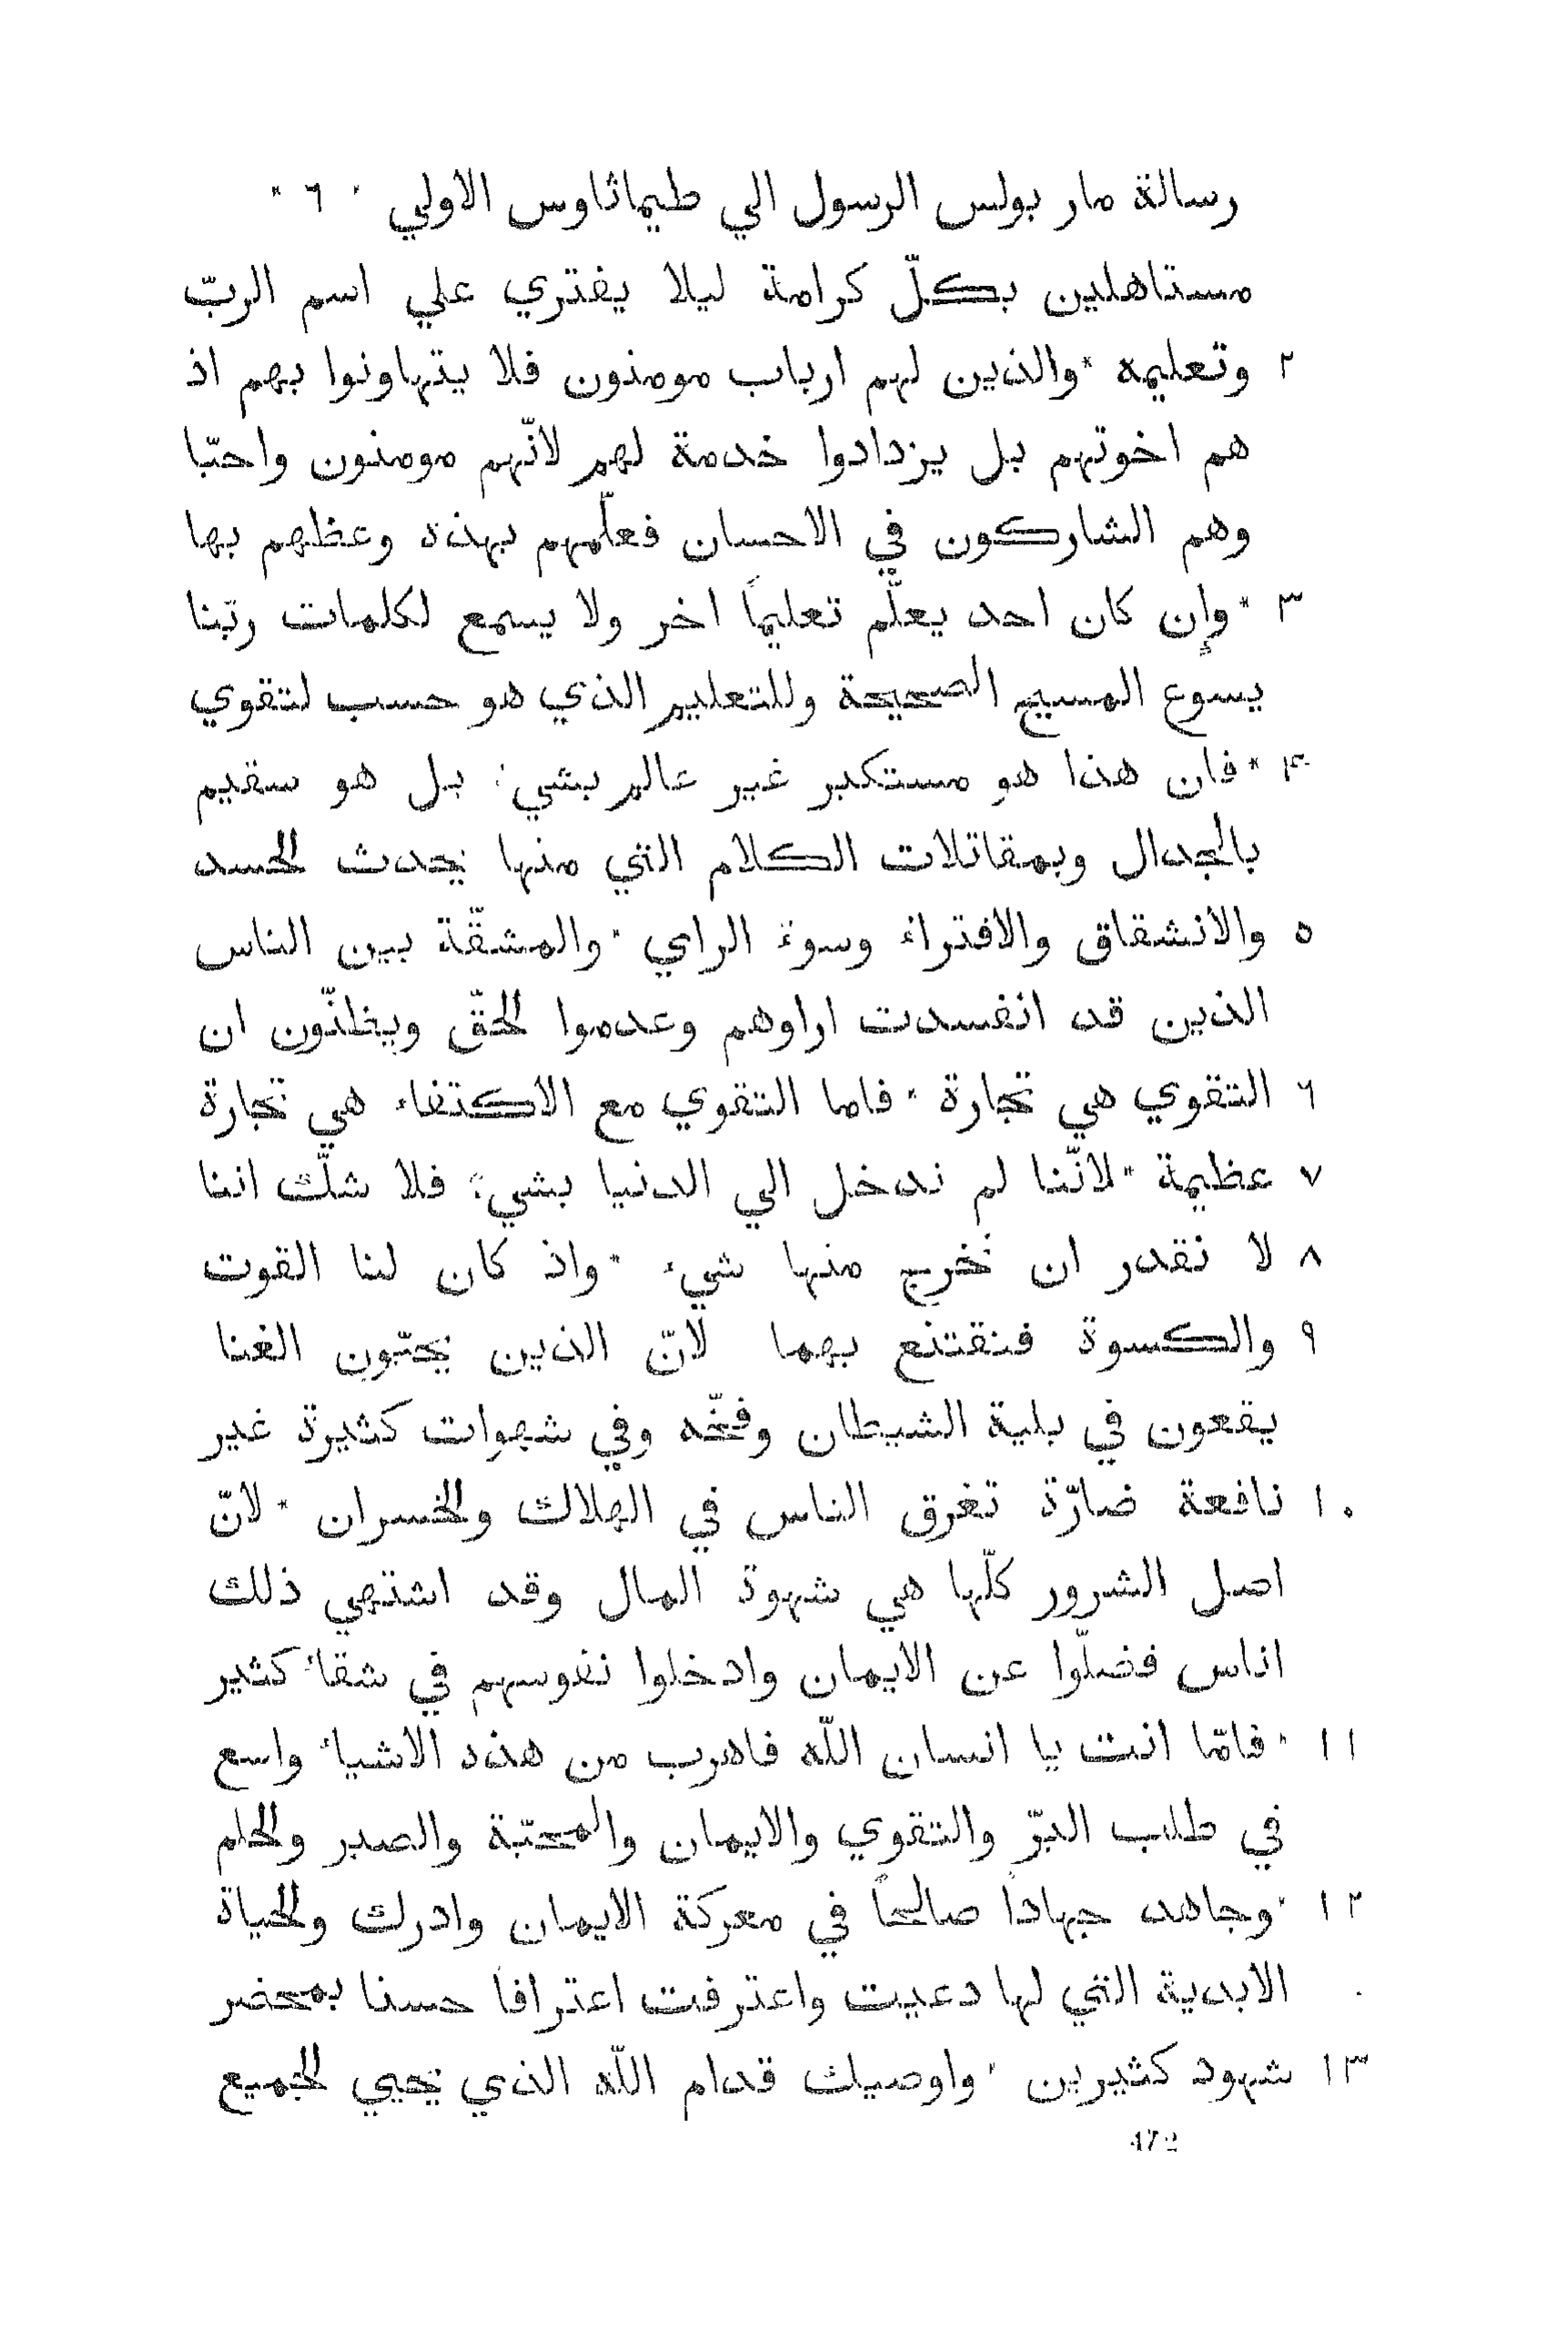 رسالة مار بولس الرسول الي طيماثاوس الاولي * ٦ *
مستاهلين بكلّ كرامة ليلا يفتري علي اسم الربّ
٢ وتعليمه * والذين لهم ارباب مومنون فلا يتهاونوا بهم اذ
هم اخوتهم بل يزدادوا خدمة لهم لانّهم مومنون واحبّا
وهم الشاركون في الاحسان فعلّمهم بهذه وعظهم بها
٣ * وإن كان احد يعلّم تعليماً اخر ولا يسمع لكلمات ربّنا
يسوع المسيح الصحيحة وللتعليم الذي هو حسب لتقوي
۴ * فان هذا هو مستكبر غير عالم بشيء بل هو سقيم
بالجدال وبمقاتلات الكلام التي منها يحدث الحسد
٥ والانشقاق والافتراء وسوء الراي * والمشقّة بين الناس
الذين قد انفسدت اراوهم وعدموا الحقّ ويظنّون ان
٦ التقوي هي تجارة * فاما التقوي مع الاكتفاء هي تجارة
٧ عظيمة * لانّنا لم ندخل الي الدنيا بشيء فلا شلّك اننا
٨ لا نقدر ان نخرج منها شيء * واذ كان لنا القوت
٩ والكسوة فنقتنع بهما لانّ الذين يحبّون الغنا
يقعون في بلية الشيطان وفخّه وفي شهوات كثيرة غير
١٠ نافعة ضارّة تغرق الناس في الهلاك والخسران * لانّ
اصل الشرور كلّها هي شهوة المال وقد اشتهي ذلك
اناس فضلّوا عن الايمان وادخلوا نفوسهم في شقاء كثير
١١ * فامّا انت يا انسان اللّه فاهرب من هذه الاشياء واسع
في طلب البرّ والتقوي والايمان والمحبّة والصبر والحلم
١٢ * وجاهد جهاداً صالحاً في معركة الايمان وادرك والحياة
الابدية التي لها دعيت واعترفت اعترافاً حسنا بمحضر
١٣ شهود كثيرين * واوصيك قدام اللّه الذي يحيي الجميع
472